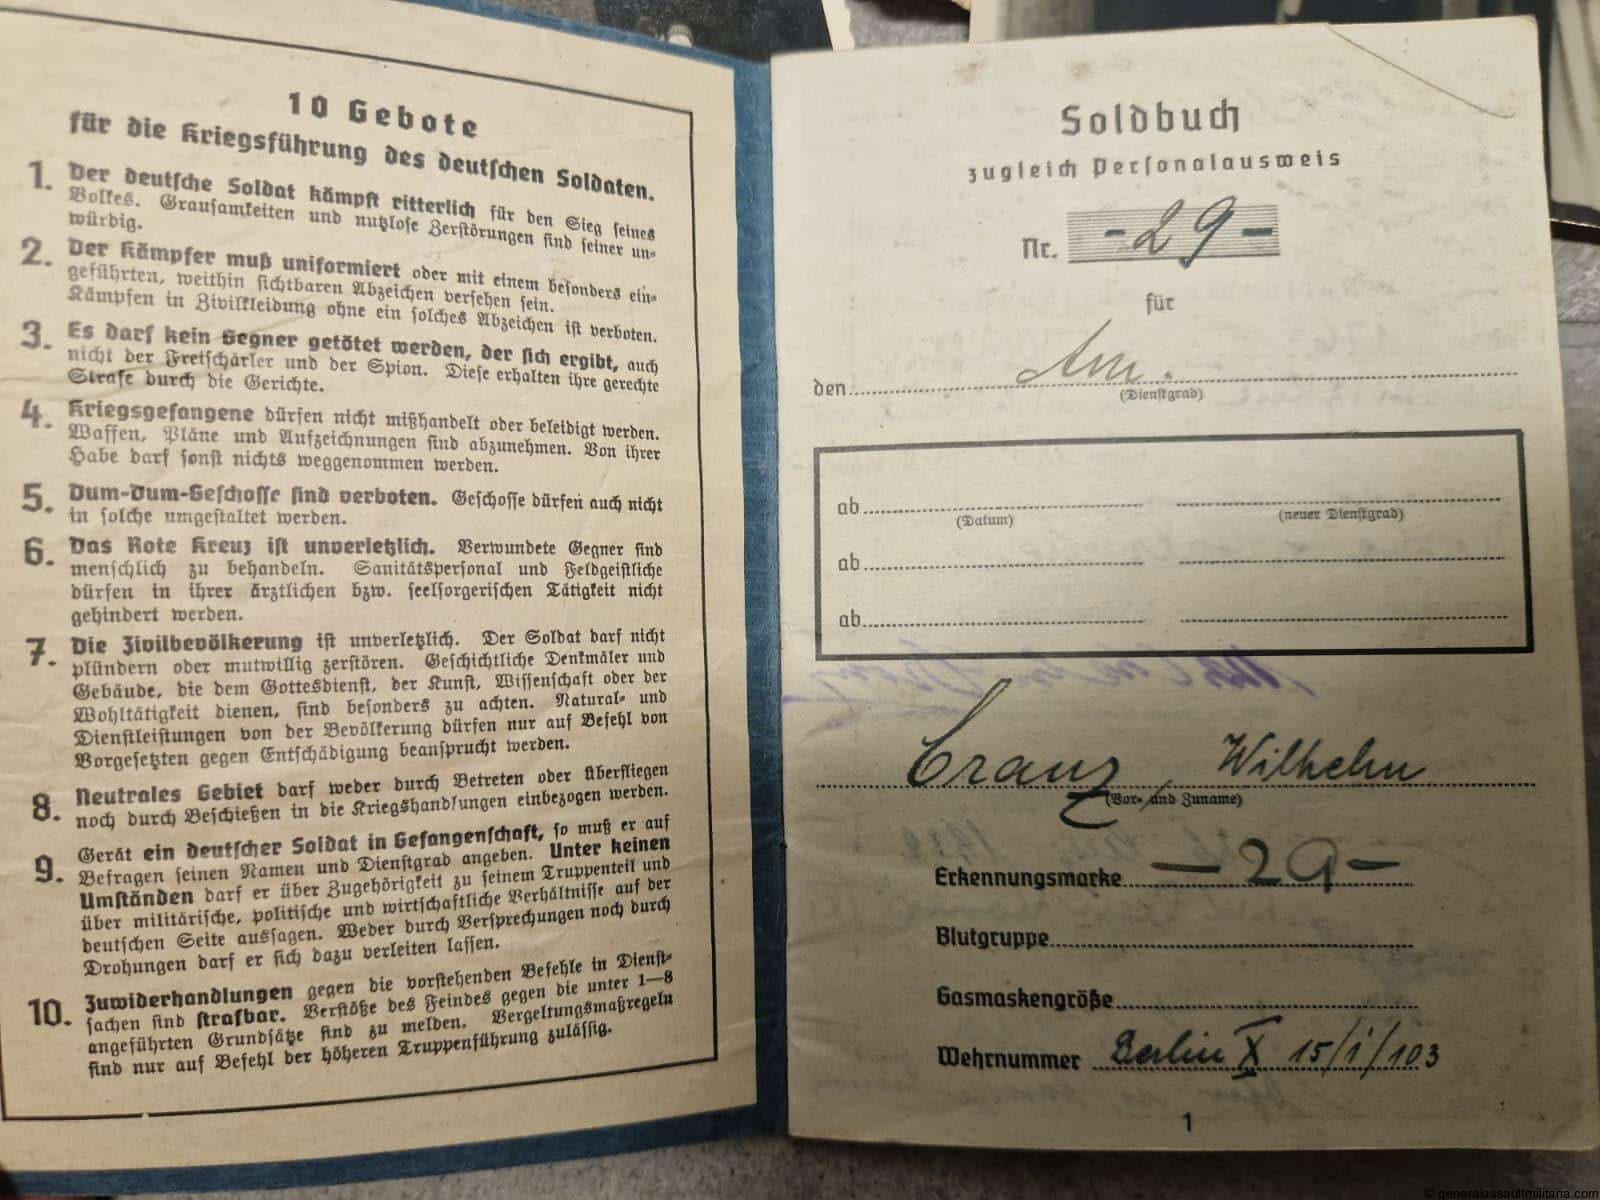 10 Gebote
für die Kriegsführung des deutschen Soldaten.
1. Der deutsche Soldat kämpft ritterlich für den Sieg seines
Volkes. Grausamkeiten und nutzlose Zerstörungen sind seiner un-
würdig.
2. Der Kämpfer muß uniformiert oder mit einem besonders ein-
geführten, weithin sichtbaren Abzeichen versehen sein.
Kämpfen in Zivilkleidung ohne ein solches Abzeichen ist verboten.
3. Es darf kein Gegner getötet werden, der sich ergibt, auch
nicht der Freischärler und der Spion. Diese erhalten ihre gerechte
Strafe durch die Gerichte.
4. Kriegsgefangene dürfen nicht mißhandelt oder beleidigt werden.
Waffen, Pläne und Aufzeichnungen sind abzunehmen. Von ihrer
Habe darf sonst nichts weggenommen werden.
5. Dum-Dum-Geschosse sind verboten. Geschosse dürfen auch nicht
in solche umgestaltet werden.
6. Das Rote Kreuz ist unverletzlich. Verwundete Gegner sind
menschlich zu behandeln. Sanitätspersonal und Feldgeistliche
dürfen in ihrer ärztlichen bzw. seelsorgerischen Tätigkeit nicht
gehindert werden.
7. Die Zivilbevölkerung ist unverletzlich. Der Soldat darf nicht
plündern oder mutwillig zerstören. Geschichtliche Denkmäler und
Gebäude, die dem Gottesdienst, der Kunst, Wissenschaft oder der
Wohltätigkeit dienen, sind besonders zu achten. Natural- und
Dienstleistungen von der Bevölkerung dürfen nur auf Befehl von
Vorgesetzten gegen Entschädigung beansprucht werden.
8. Neutrales Gebiet darf weder durch Betreten oder Überfliegen
noch durch Beschießen in die Kriegshandlungen einbezogen werden.
9. Gerät ein deutscher Soldat in Gefangenschaft, so muß er auf
Befragen seinen Namen und Dienstgrad angeben. Unter keinen
Umständen darf er über Zugehörigkeit zu seinem Truppenteil und
über militärische, politische und wirtschaftliche Verhältnisse auf der
deutschen Seite aussagen. Weder durch Versprechungen noch durch
Drohungen darf er sich dazu verleiten lassen.
10. Zuwiderhandlungen gegen die vorstehenden Befehle in Dienst-
sachen sind strafbar. Verstöße des Feindes gegen die unter 1—8
angeführten Grundsätze sind zu melden. Vergeltungsmaßregeln
sind nur auf Befehl der höheren Truppenführung zulässig.
Soldbuch
zugleich Personalausweis
Nr. -29-
für
den
(Dienstgrad)
ab
(Datum) (neuer Dienstgrad)
ab
ab
Cranz, Wilhelm
(Vor- und Zuname)
Erkennungsmarke -29-
Blutgruppe
Gasmaskengröße
Wehrnummer Berlin X 15/1/103
1
© generalassaultmilitaria.com